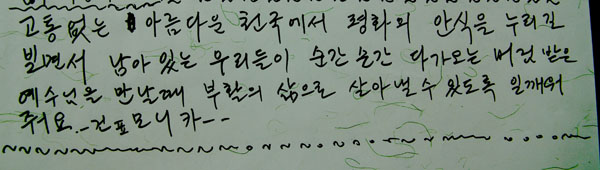 고통없는 아름다운 천국에서 평화의 안식을 누리길
빌면서 남아 있는 우리들이 순간 순간 다가오는 버림 받은
예수님을 만날때 부활의 삶으로 살아낼 수 있도록 일깨워
줘요_건표모니카--